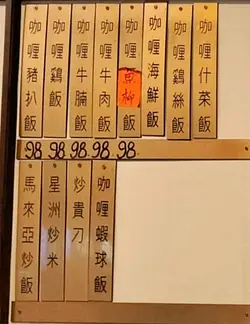 咖喱豬扒飯
咖喱鷄飯
咖喱牛腩飯
咖喱牛肉飯
咖喱魚柳飯
咖喱海鮮飯
咖喱鷄絲飯
咖喱什菜飯
98 98 98 98 98
馬來亞炒飯
星洲炒米
炒貴刀
咖喱蝦球飯